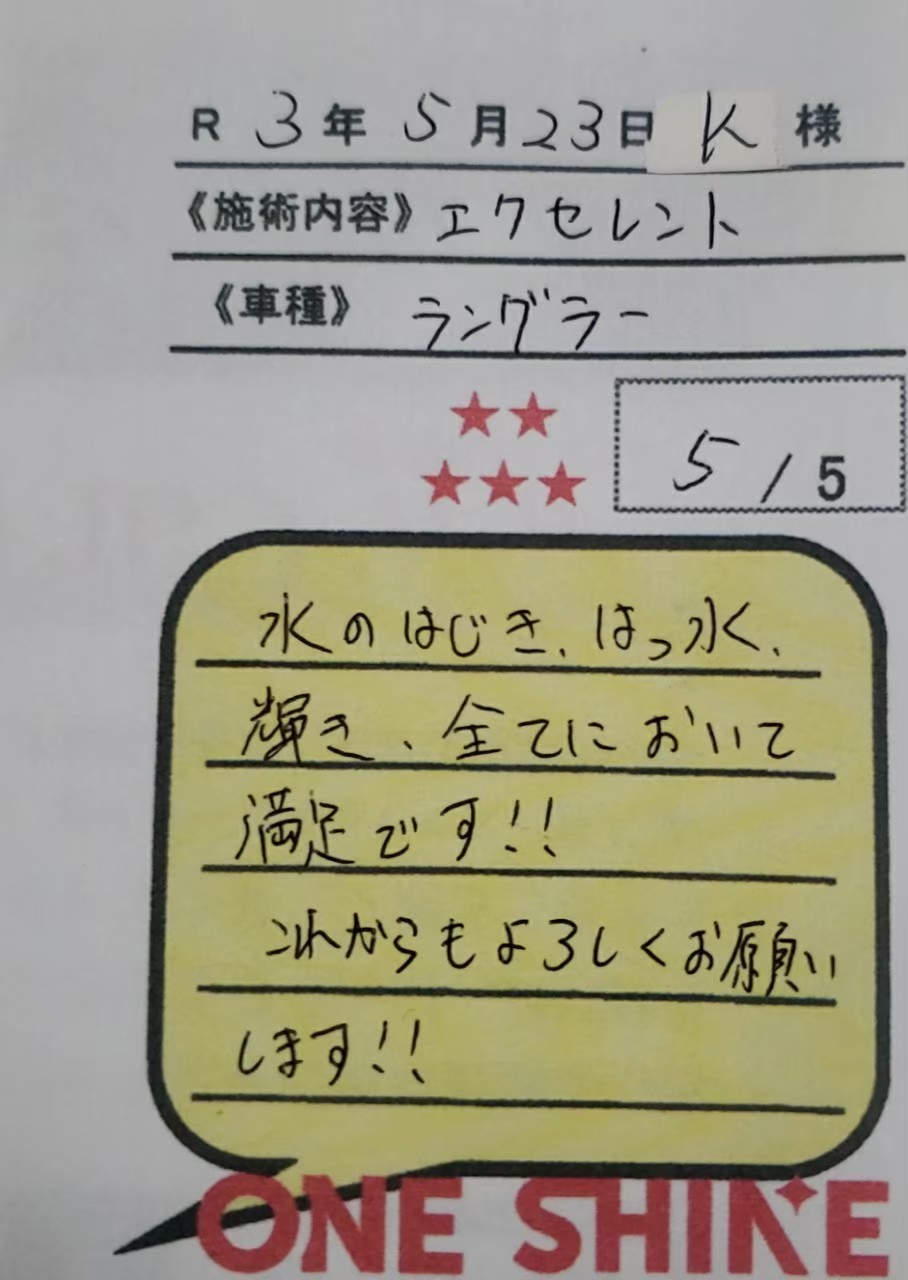 R 3年 5月23日 K 様
《施術内容》エクセレント
《車種》 ラングラー
5 / 5
水のはじき、はっ水、
輝き、全てにおいて
満足です!!
これからもよろしくお願い
します!!
ONE SHINE